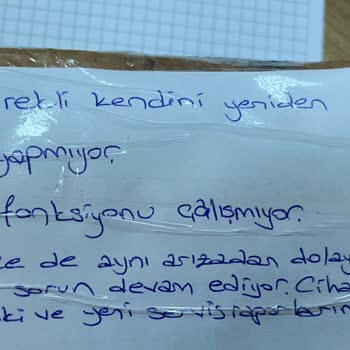 rekli kendini yeniden
yapmıyor.
fonksiyonu çalışmıyor.
de aynı arızadan dolay
sorun devam ediyor. Ciha
ki ve yeni servis